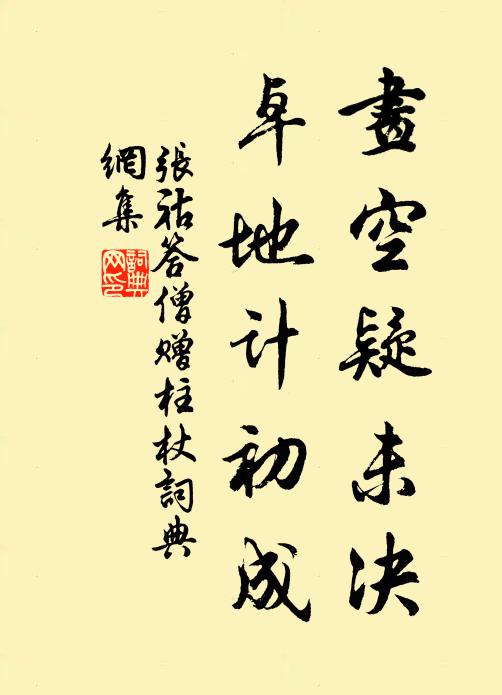 畫空疑未決
卓地計初成
張祜答僧贈柱杖詞典
網集
詞典
网印